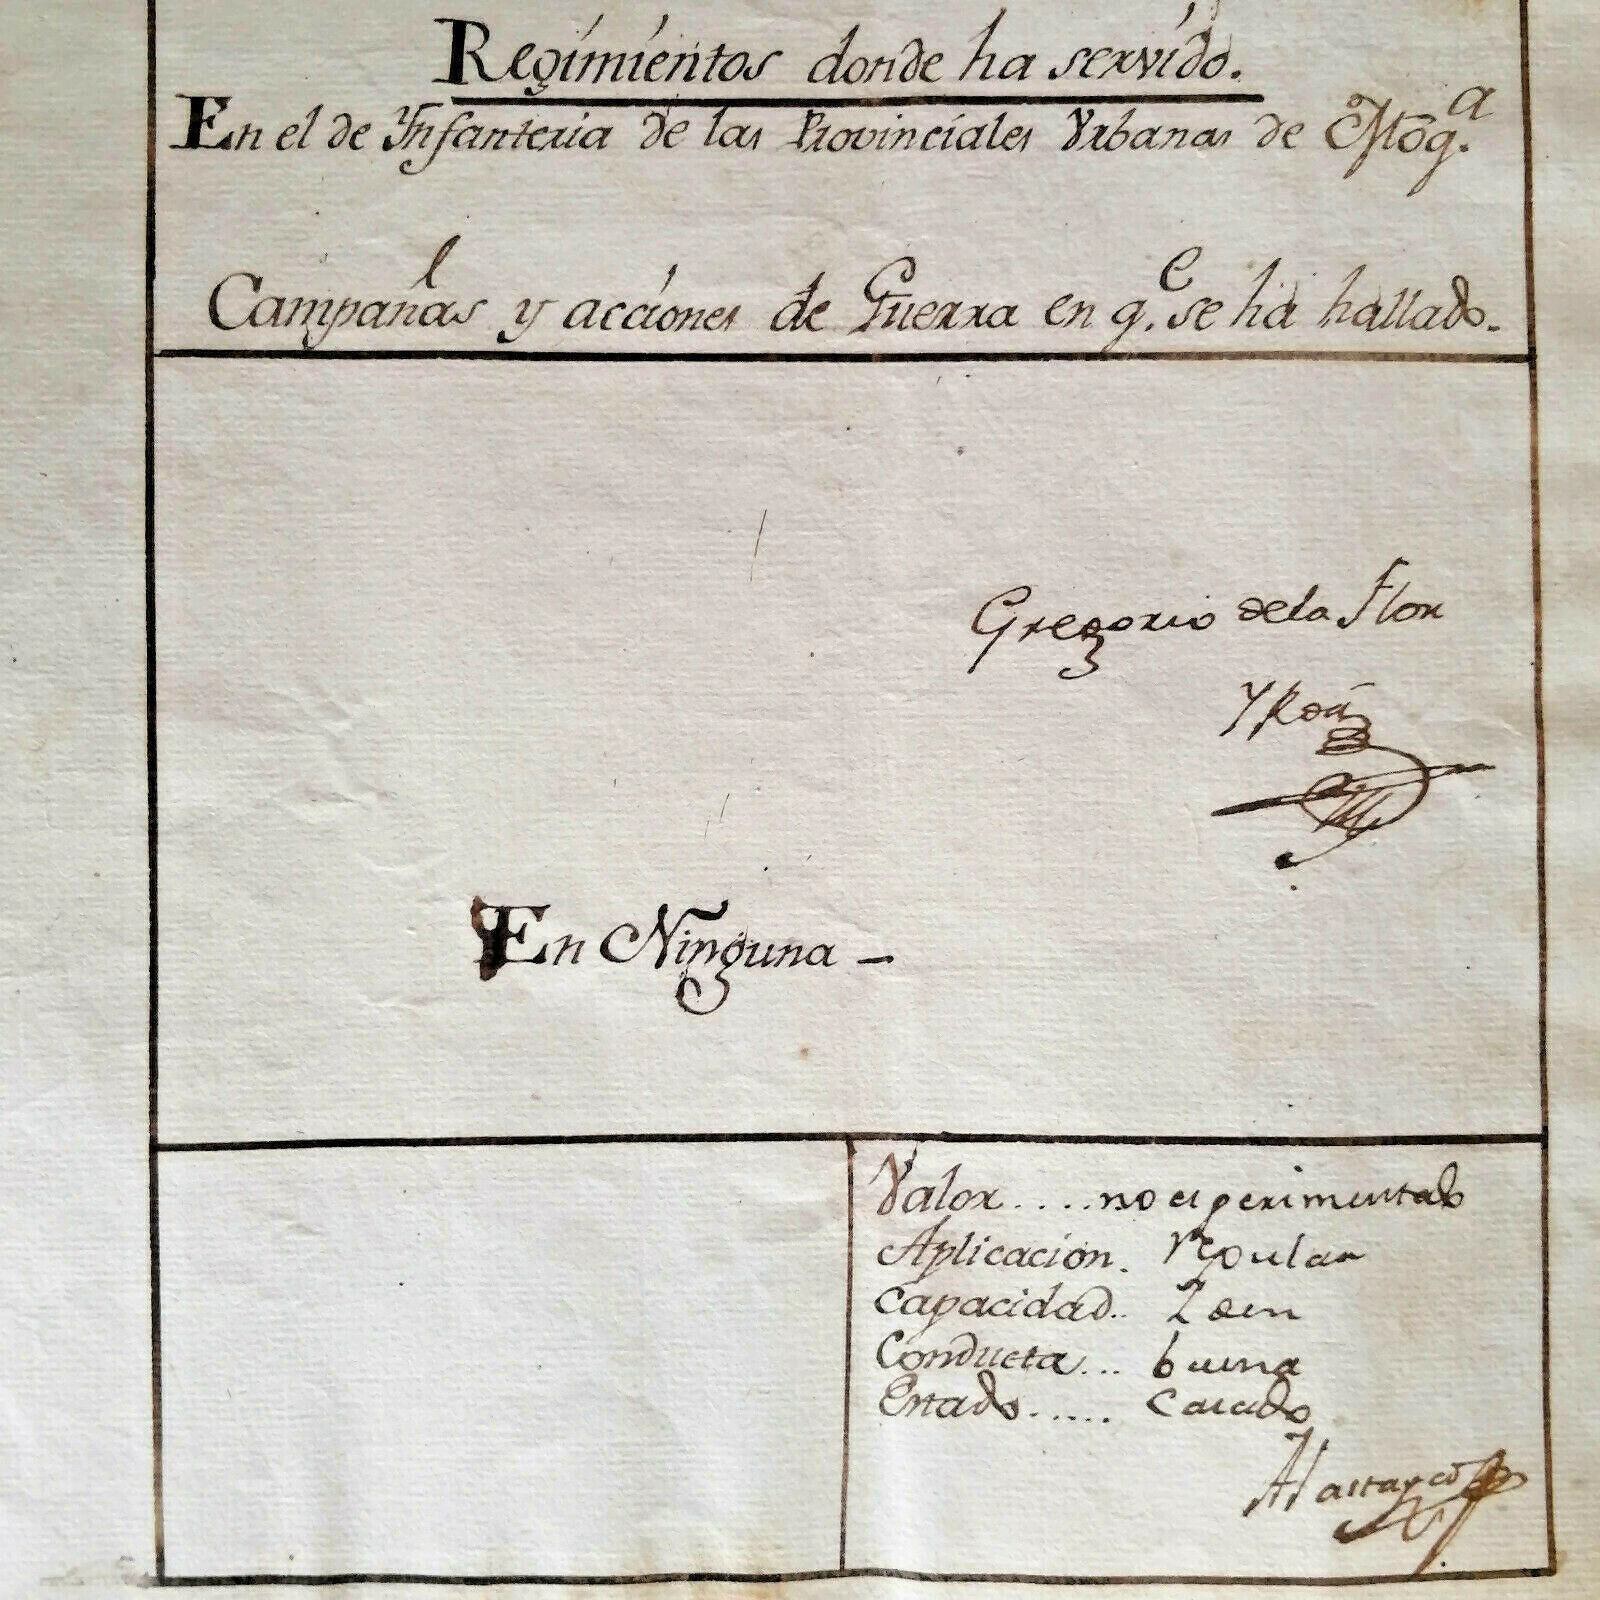 Regimientos donde ha servido.
En el de Ynfanteria de las Provinciales Vrbanas de Moq.a
Campañas y acciones de Guerra en q.e se ha hallado.
Gregorio de la Flor
En Ninguna
Valor .... no esperimentado
Aplicación. regular
Capacidad.. Idem
Conducta... buena
Estado..... Casado